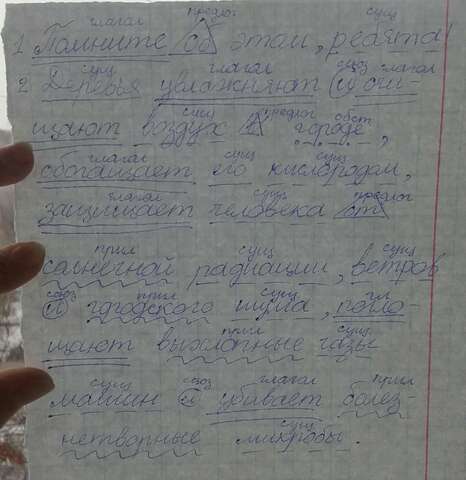 глагол предлог сущ
1. Помните об этом, ребята!
сущ глагол союз глагол
2. Деревья увлажняют и очи-
сущ предлог обст
щают воздух в городе,
глагол сущ сущ
обогащает его кислородом,
глагол сущ предлог
защищает человека от
прил сущ сущ
солнечной радиации, ветров
союз прил сущ гл
и городского шума, погло-
прил сущ
щают выхлопные газы
сущ союз глагол прил
машин и убивает болез-
сущ
нетворные микробы.